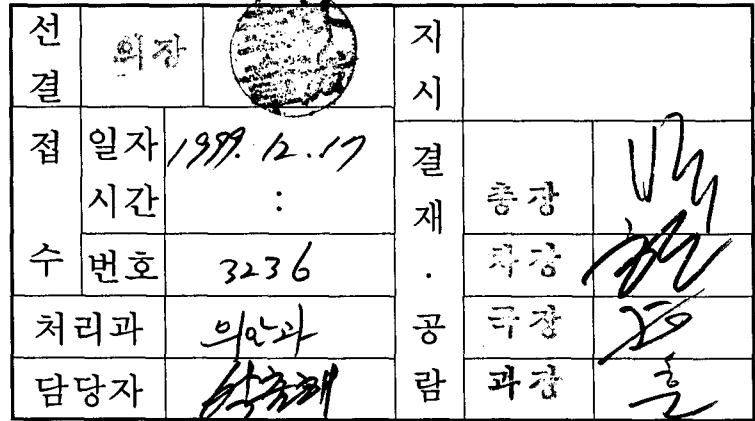 선결 의장 지시
접수 일자 1999. 12. 17 결재·공람
시간 :
총장
번호 3236 차장
처리과 의안과 국장
담당자 과장